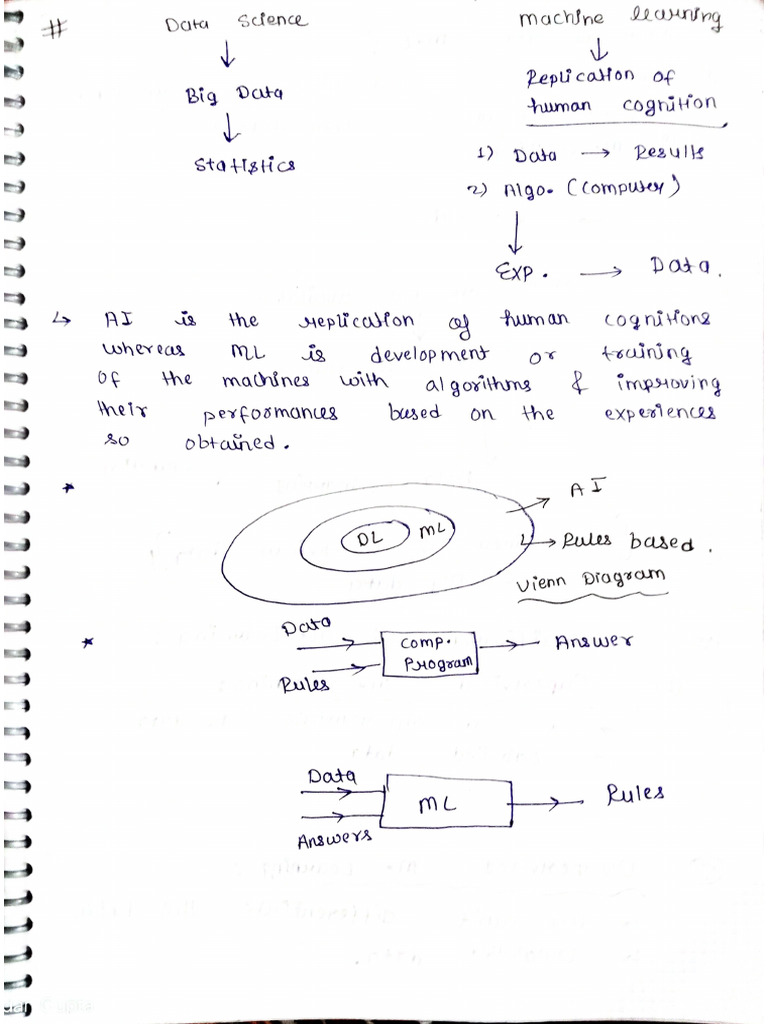 #
Data Science
↓
Big Data
↓
Statistics
machine learning
↓
Replication of
human cognition
1) Data → Results
2) Algo. (Computer)
↓
Exp. → Data.
↳ AI is the replication of human cognitions
whereas ML is development or training
of the machines with algorithms & improving
their performances based on the experiences
so obtained.
*
DL
ML
→ AI
→ Rules based.
Vienn Diagram
*
Data
Rules
Comp.
Program
Answer
Data
Answers
ML
Rules